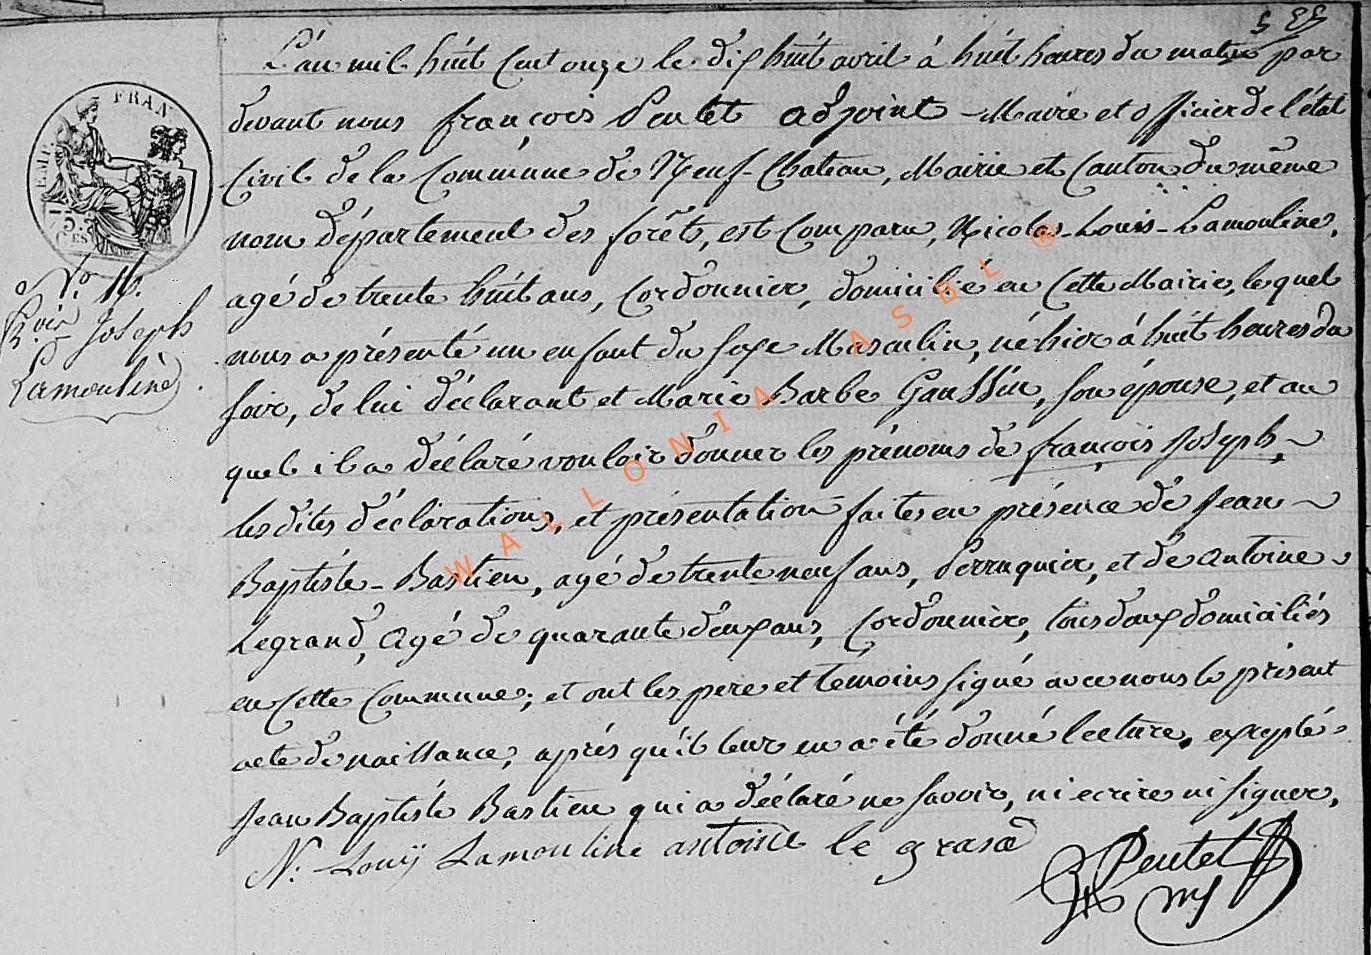 L'an mil huit Cent onze le dix huit avril à huit heures du matin par
devant nous françois Pentet adjoint Maire et officier de l'état
Civil de la Commune de Neuf-Chateau, Mairie et Canton du même
nom département des forêts, est Comparu, Nicolas-Louis-Lamouline,
agé de trente huit ans, Cordonnier, domicilié en Cette Mairie, lequel
nous a présenté un enfant du sexe Masculin, né hier à huit heures du
soir, de lui déclarant et Marie Barbe Gaussin, son épouse, et au
quel il a déclaré vouloir donner les prénoms de françois Joseph,
les dites déclarations, et présentation faites en présence de Jean
Baptiste-Bastien, agé de trente neuf ans, Perruquier, et de Antoine
Legrand, agé de quarante deux ans, Cordonnier, tous deux domiciliés
en Cette Commune; et ont les pere et temoins signé avec nous le présent
acte de naissance, après qu'il leur en a été donné lecture, excepté
Jean Baptiste Bastien qui a déclaré ne savoir, ni ecrire ni signer.
N: Louij Lamouline antoine le grand
Pentet
FRAN
EMP.
75.
CES
N.o 16.
Joseph
Lamouline
WALLONIA ASBL ®